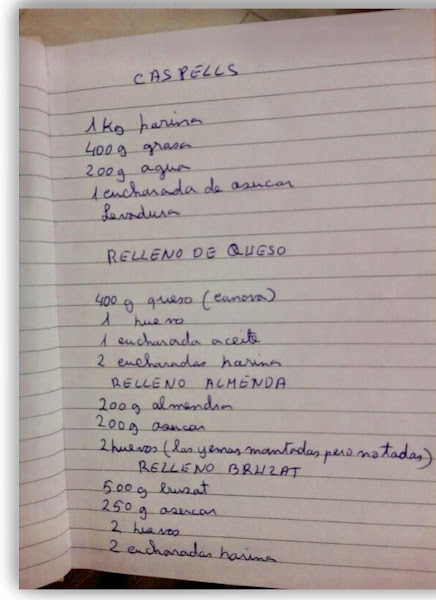 CASPELLS
1 Kg harina
400g grasa
200g agua
1 cucharada de asucar
Levadura
RELLENO DE QUESO
400 g queso (canova)
1 huevo
1 cucharada aceite
2 cucharadas harina
RELLENO ALMENDA
200g almendra
200g asucar
2 huevos (las yemas montadas pero no todas)
RELLENO BRUZAT
500g bruzat
250g asucar
2 huevos
2 cucharadas harina